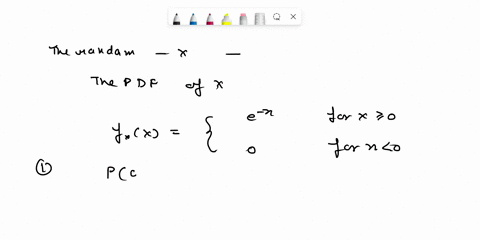 The random — x —
The PDF of x
fx(x) = { e^-x for x ≥ 0
0 for x < 0
① P(c